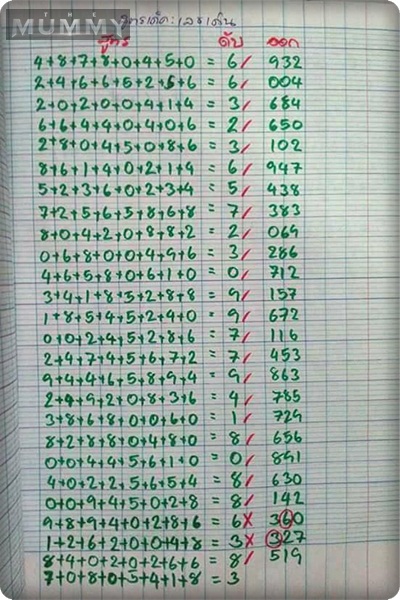 MUMMY
สูตร ดับ ออก
4+8+7+8+0+4+5+0 = 6/ 932
2+4+6+6+5+2+5+6 = 6/ 004
2+0+2+0+0+4+1+4 = 3/ 684
6+6+4+4+0+4+0+6 = 2/ 650
2+8+0+4+5+0+8+6 = 3/ 102
8+6+1+4+0+2+1+4 = 6/ 947
5+2+3+6+0+2+3+4 = 5/ 438
7+2+5+6+5+8+6+8 = 7/ 383
8+0+4+2+0+8+8+2 = 2/ 069
0+6+8+0+0+4+9+6 = 3/ 286
4+6+5+8+0+6+1+0 = 0/ 712
3+4+1+8+5+2+8+8 = 9/ 157
1+8+5+4+5+2+4+0 = 9/ 672
0+0+2+4+5+2+8+6 = 7/ 116
2+4+7+4+5+6+7+2 = 7/ 453
9+4+4+6+5+8+9+4 = 9/ 863
2+4+9+2+0+8+3+6 = 4/ 785
3+8+6+8+0+0+6+0 = 1/ 729
8+2+8+8+0+4+8+0 = 8/ 656
0+0+4+4+5+6+1+0 = 0/ 891
4+0+2+2+5+6+5+4 = 8/ 630
0+0+9+4+5+0+2+8 = 8/ 142
9+8+9+4+0+2+8+6 = 6X 360
1+2+6+2+0+0+4+8 = 3X 327
8+4+0+2+0+2+6+6 = 8/ 519
7+0+8+0+5+4+1+8 = 3